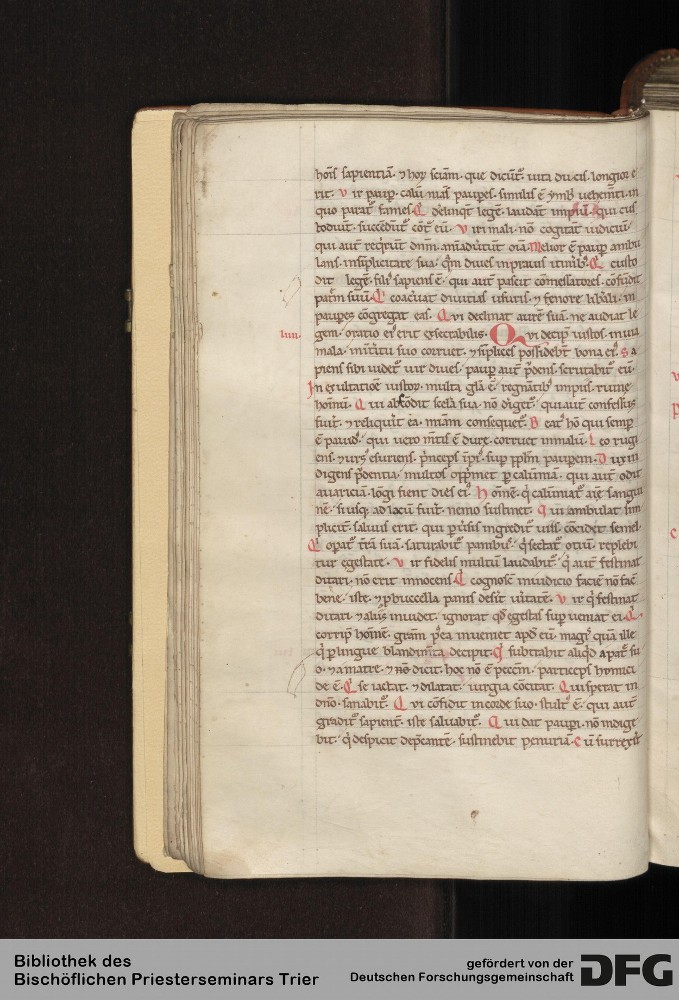 hoīs sapientiā. ⁊ hoꝝ sciam. que dicūt᷑. uita ducis. longior e
rit. Vir paup. calūnians paupes. similis ē ymbri uehemēti. in
quo parat᷑ fames. Qi delinqūt legē. laudant impiū. qui cus
todiūt. succēdūt᷑ cōt̄ eū. Viri mali. nō cogitāt iudiciū.
qui aūt reqͥrunt dnm̄. aīaduertūt oīa. Melior ē paup ambu
lans in simplicitate sua. qͣm diues in prauis itinībꝰ. Qi custo
dit legē. filiꝰ sapiens ē. qui aūt pascit comessatores. cōfūdit
patrē suū. Qi coaceruat diuitias usuris. ⁊ fenore. libali. in
paupes congregat eas. Qui declinat aurē suā. ne audiat le
gem. oratio eiꝰ erit exsecrabilis. Qui decipit iustos. in uia
mala. in int̄itu suo corruet. ⁊ simplices possidebt̄ bona eiꝰ. Sa
piens sibi uidet᷑ uir diues. paup aūt pͥdens. scrutabit᷑ eū.
In exultatiōe iustoꝝ. multa gl̄a ē. regnātibꝰ impiis. ruine
hominū. Qui abscōdit scelā sua. nō diriget᷑. qui aūt confessus
fuīt. ⁊ reliquīt ea. mīam consequet᷑. Beatꝰ hō qui semp
ē pauidꝰ. qui uero mētis ē dure. corruet in malū. Leo rugi
ens. ⁊ ursꝰ esuriens. pͥnceps īpiꝰ. sup pplm̄ paupem. Dux in
digens pͥdentia. multos oppͥmet p calūniā. qui aūt odit
auariciā. longi fient dies eiꝰ. Hominē. qͥ calūniat᷑ aīe sangui
nē. si usꝗ ad lacū fuīt. nemo sustinet. Qui ambulat sim
plicit̄. saluus erit. qui puersis ingredit᷑ uiis. cōcidet semel.
Qi opat᷑ trā suā. saturabit᷑ panibꝰ. qͥ sectat᷑ otiū. replebi
tur egestate. Vir fidelis multū laudabit᷑. qͥ aūt festinat
ditari. nō erit innocens. Qi cognosc̄ in iudicio faciē nō fac̄
bene. iste. ⁊ p buccella panis desīt uītatē. Vir qͥ festinat
ditari. ⁊ aliis inuidet. ignorat qd̄ egestas supueniat ei. Qi
corripit hominē. gratiam pꝰea inueniet apd̄ eū. magiꝰ quā ille
qͥ p lingue blandimēta decipit. Qi subtrahit aliqd̄ a patre su
o. ⁊ a matre. ⁊ dicit. hoc nō ē peccm̄. particeps homici
de ē. Qi se iactat. ⁊ dilatat. iurgia cōcitat. Qui sperat in
dn̄o. sanabit᷑. Qui cōfidit in corde suo. stultꝰ ē. qui aūt
gradit᷑ sapient̄. iste saluabit᷑. Qui dat paupi. nō indige
bit. qͥ despicit depͥcantē. sustinebit penuriā. Cū surrexīt
liiii.
Bibliothek des
Bischöflichen Priesterseminars Trier
gefördert von der
Deutschen Forschungsgemeinschaft
DFG